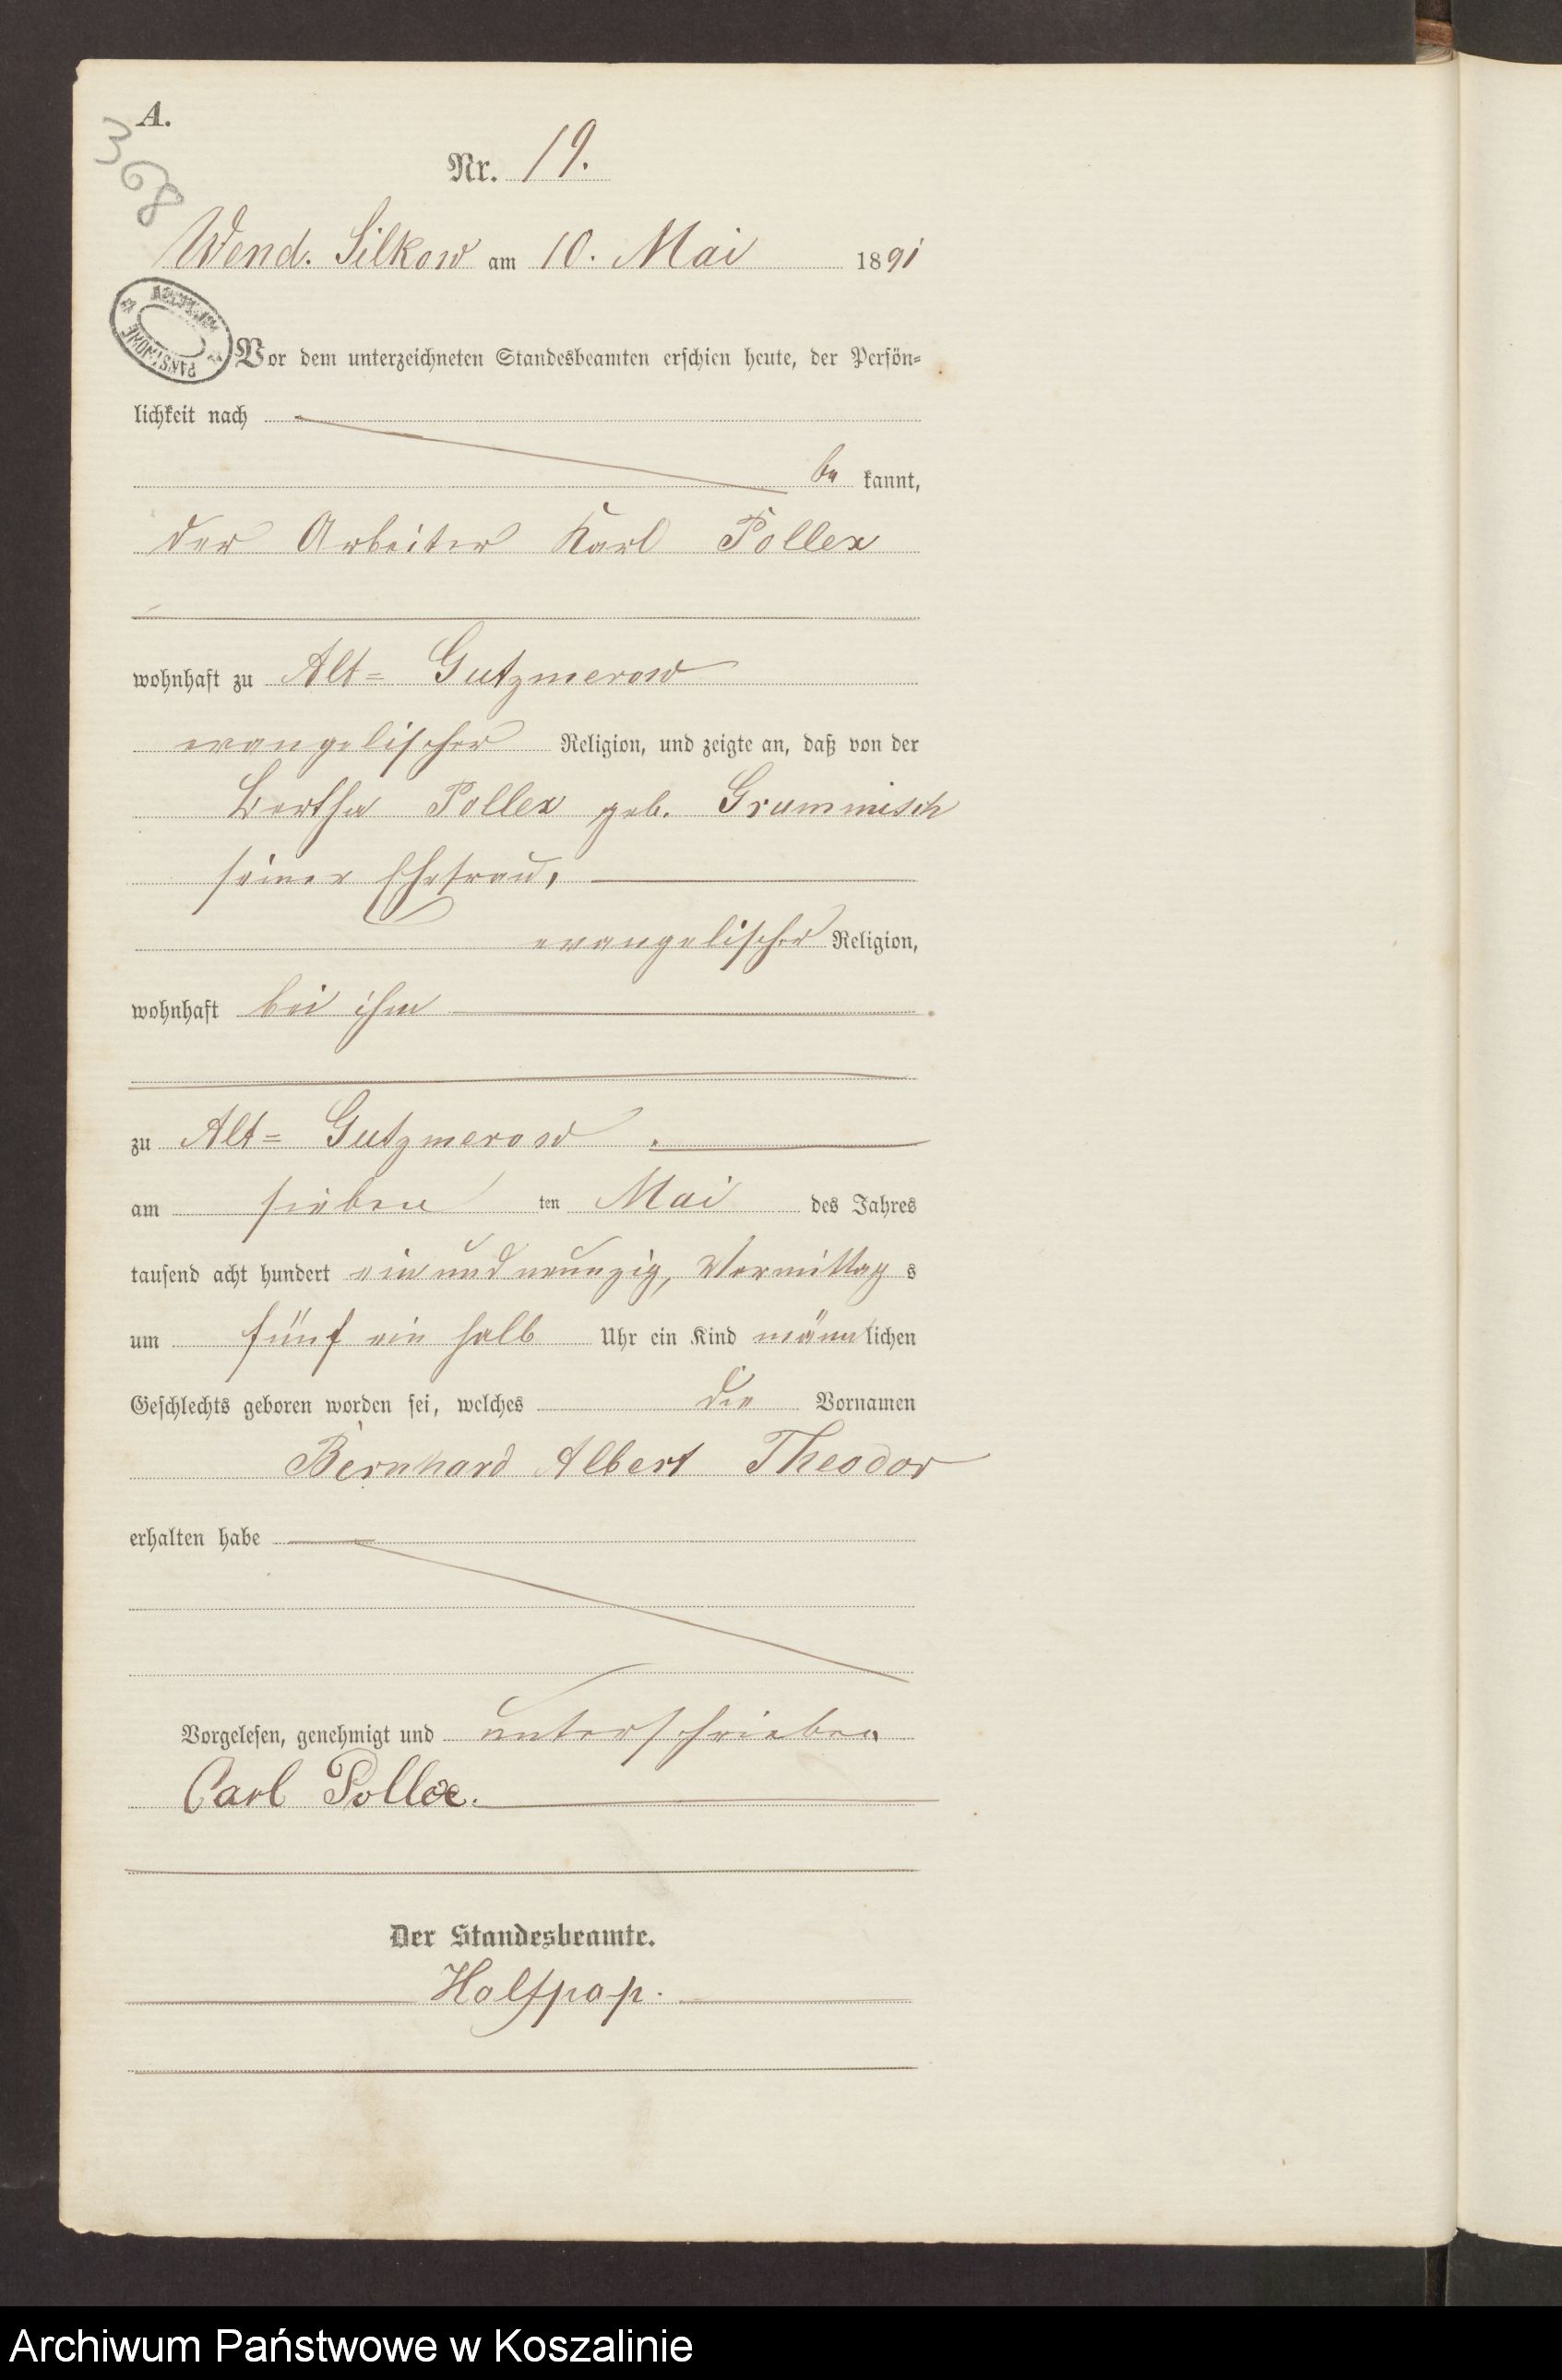 A.
368
Nr. 19.
Wend. Silkow am 10. Mai 1891
ARCHIWUM PAŃSTWOWE
Vor dem unterzeichneten Standesbeamten erschien heute, der Persön-
lichkeit nach
be kannt,
der Arbeiter Karl Pollex
wohnhaft zu Alt- Gutzmerow
evangelischer Religion, und zeigte an, daß von der
Bertha Pollex geb. Grummisch
seiner Ehefrau,
evangelischer Religion,
wohnhaft bei ihm
zu Alt- Gutzmerow.
am sieben ten Mai des Jahres
tausend acht hundert ein und neunzig, Vormittag s
um fünf ein halb Uhr ein Kind männlichen
Geschlechts geboren worden sei, welches die Vornamen
Bernhard Albert Theodor
erhalten habe
Vorgelesen, genehmigt und unterschrieben
Carl Pollex.
Der Standesbeamte.
Halfpap.
Archiwum Państwowe w Koszalinie